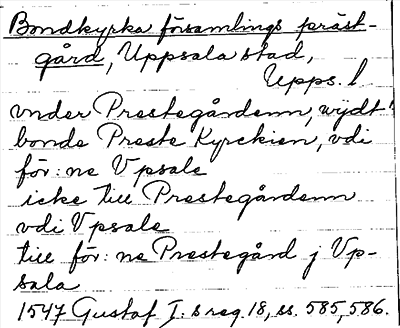 Bondkyrka församlings präst-
gård, Uppsala stad,
Upps. l
vnder Prestegårdenn, wijdt
bonde Preste Kyrckien, vdi
för: ne Vpsale
icke till Prestegårdenn
vdi Vpsale
till för: ne Prestegård j Vp-
sala
1547 Gustaf I: s reg. 18, ss. 585, 586.